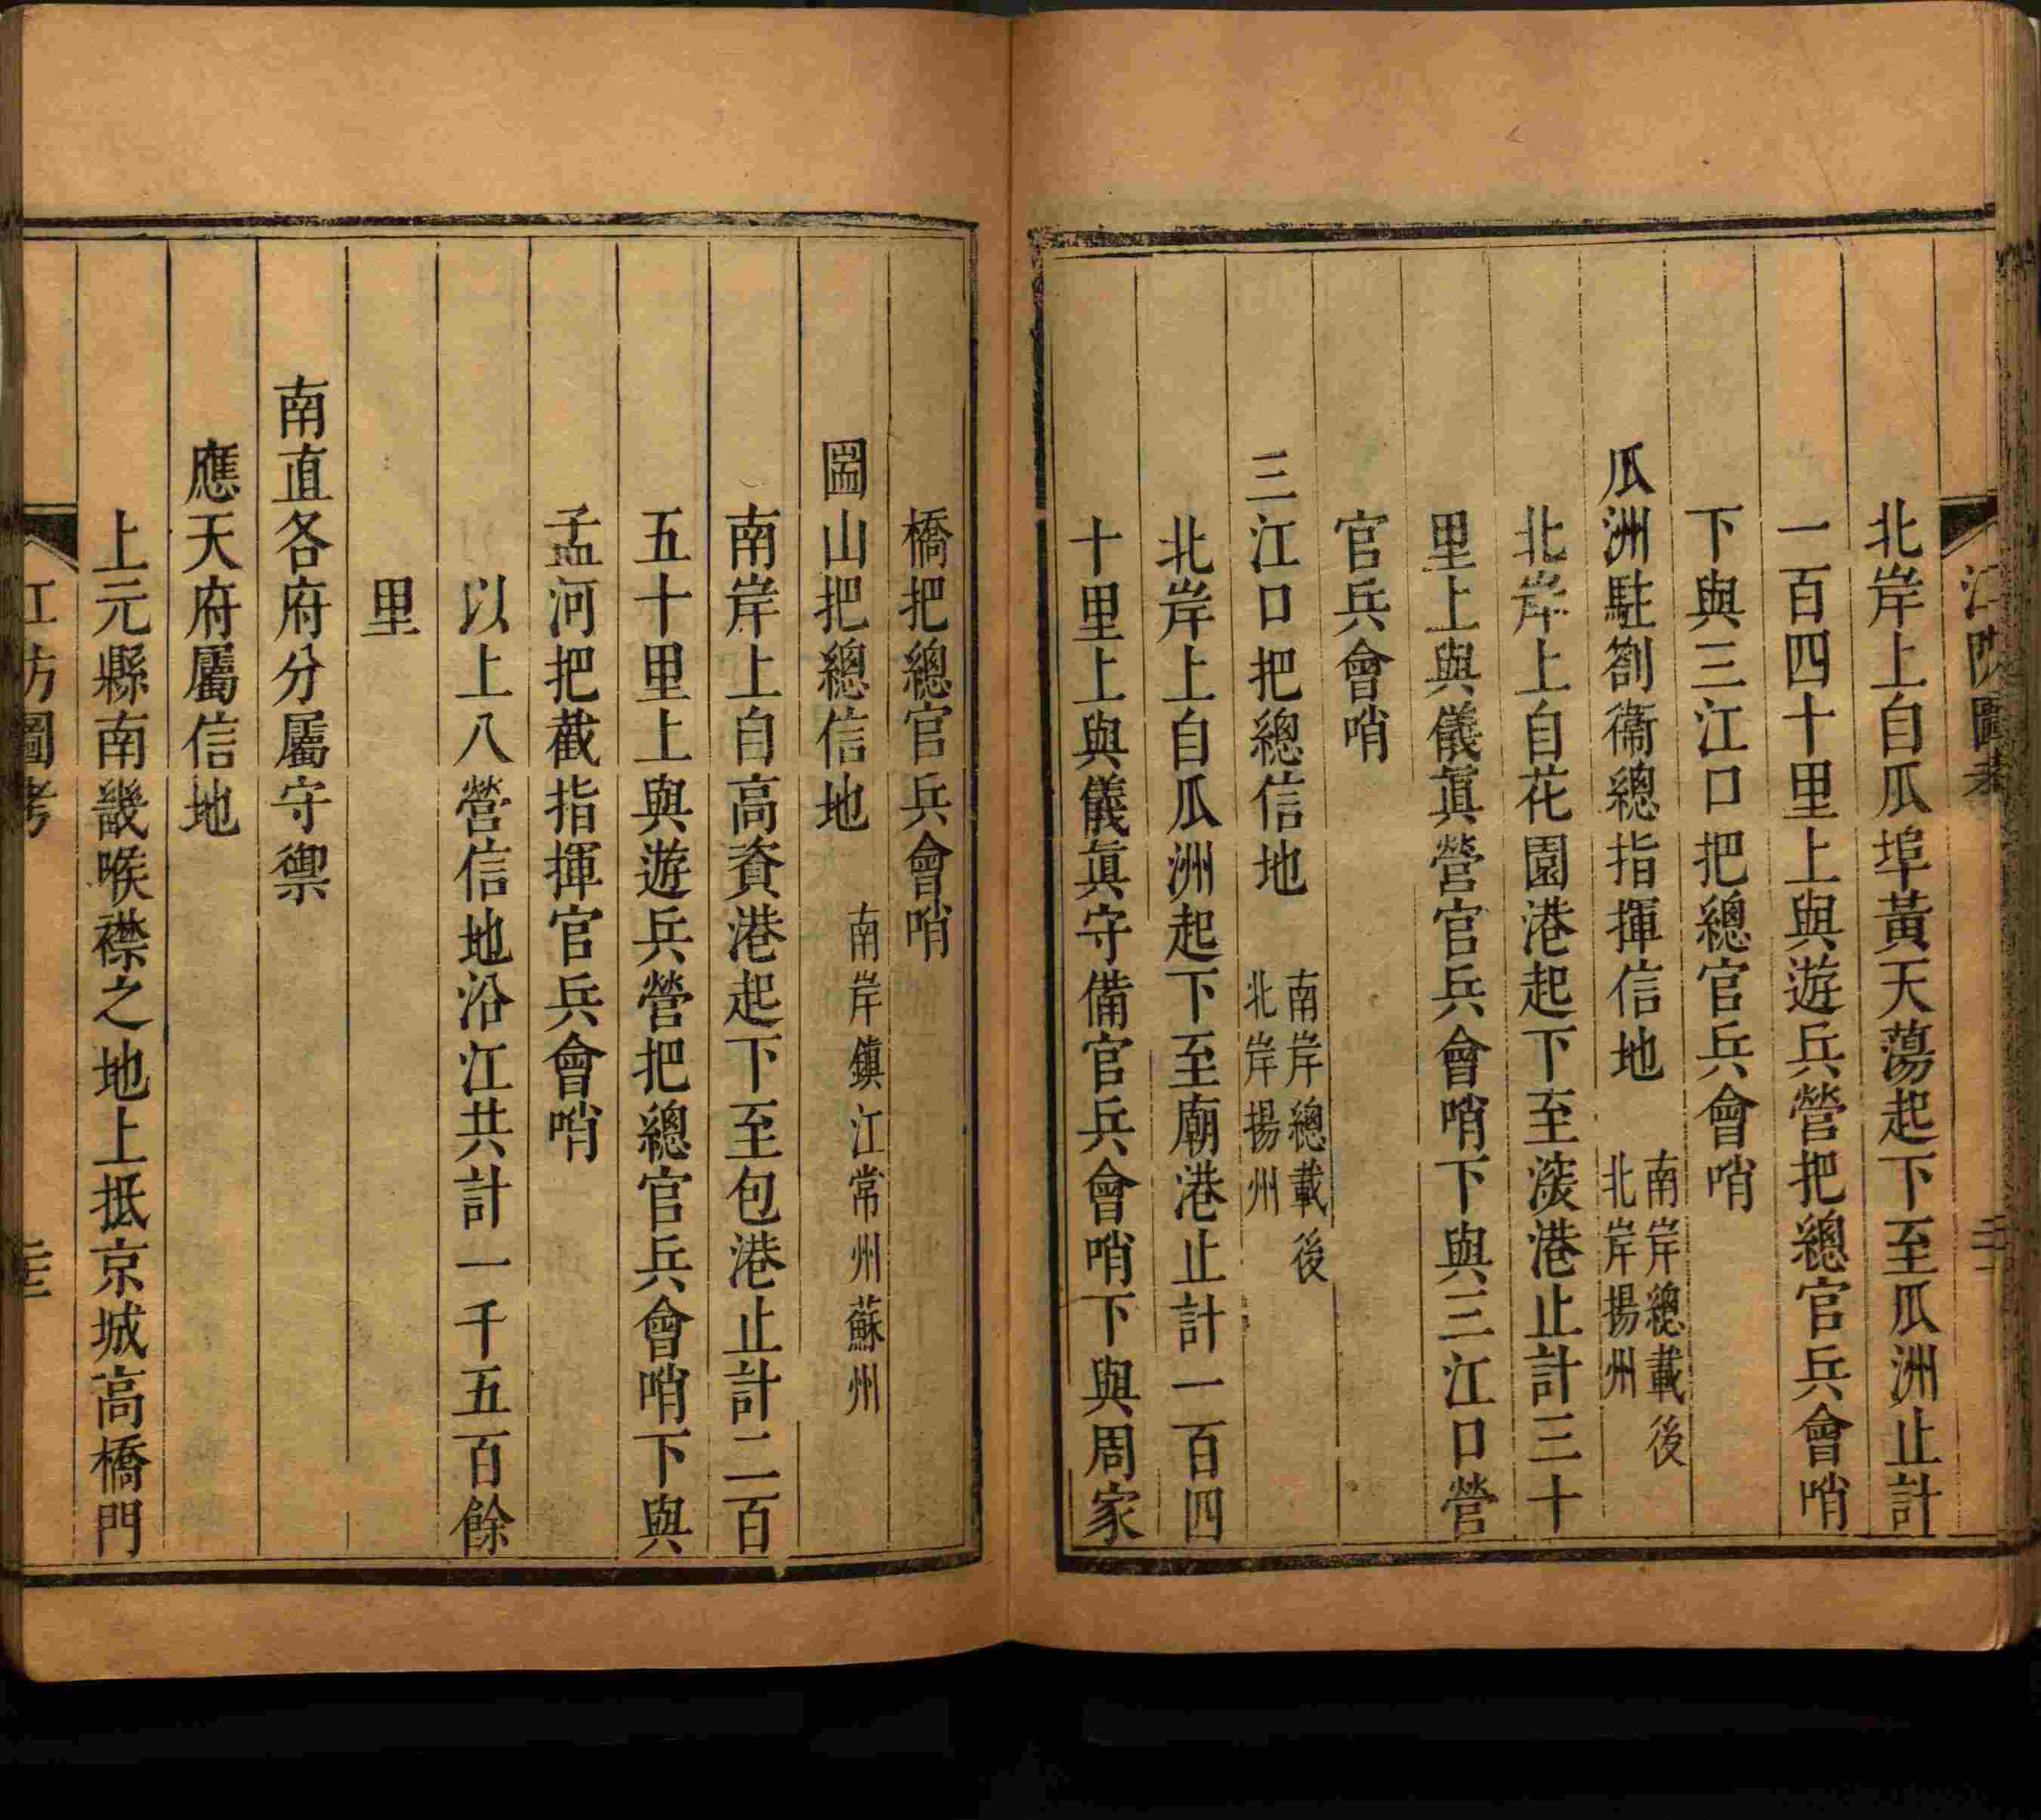 江防圖考
北岸上自瓜埠黃天蕩起下至瓜洲止計
一百四十里上與遊兵營把總官兵會哨
下與三江口把總官兵會哨
瓜洲駐劄衞總指揮信地 南岸總載後 北岸揚州
北岸上自花園港起下至深港止計三十
里上與儀眞營官兵會哨下與三江口營
官兵會哨
三江口把總信地 南岸總載後 北岸揚州
北岸上自瓜洲起下至廟港止計一百四
十里上與儀眞守備官兵會哨下與周家
橋把總官兵會哨
圌山把總信地 南岸鎮江常州蘇州
南岸上自高資港起下至包港止計二百
五十里上與遊兵營把總官兵會哨下與
孟河把截指揮官兵會哨
以上八營信地沿江共計一千五百餘
里
南直各府分屬守禦
應天府屬信地
上元縣南畿喉襟之地上抵京城高橋門
江防圖考